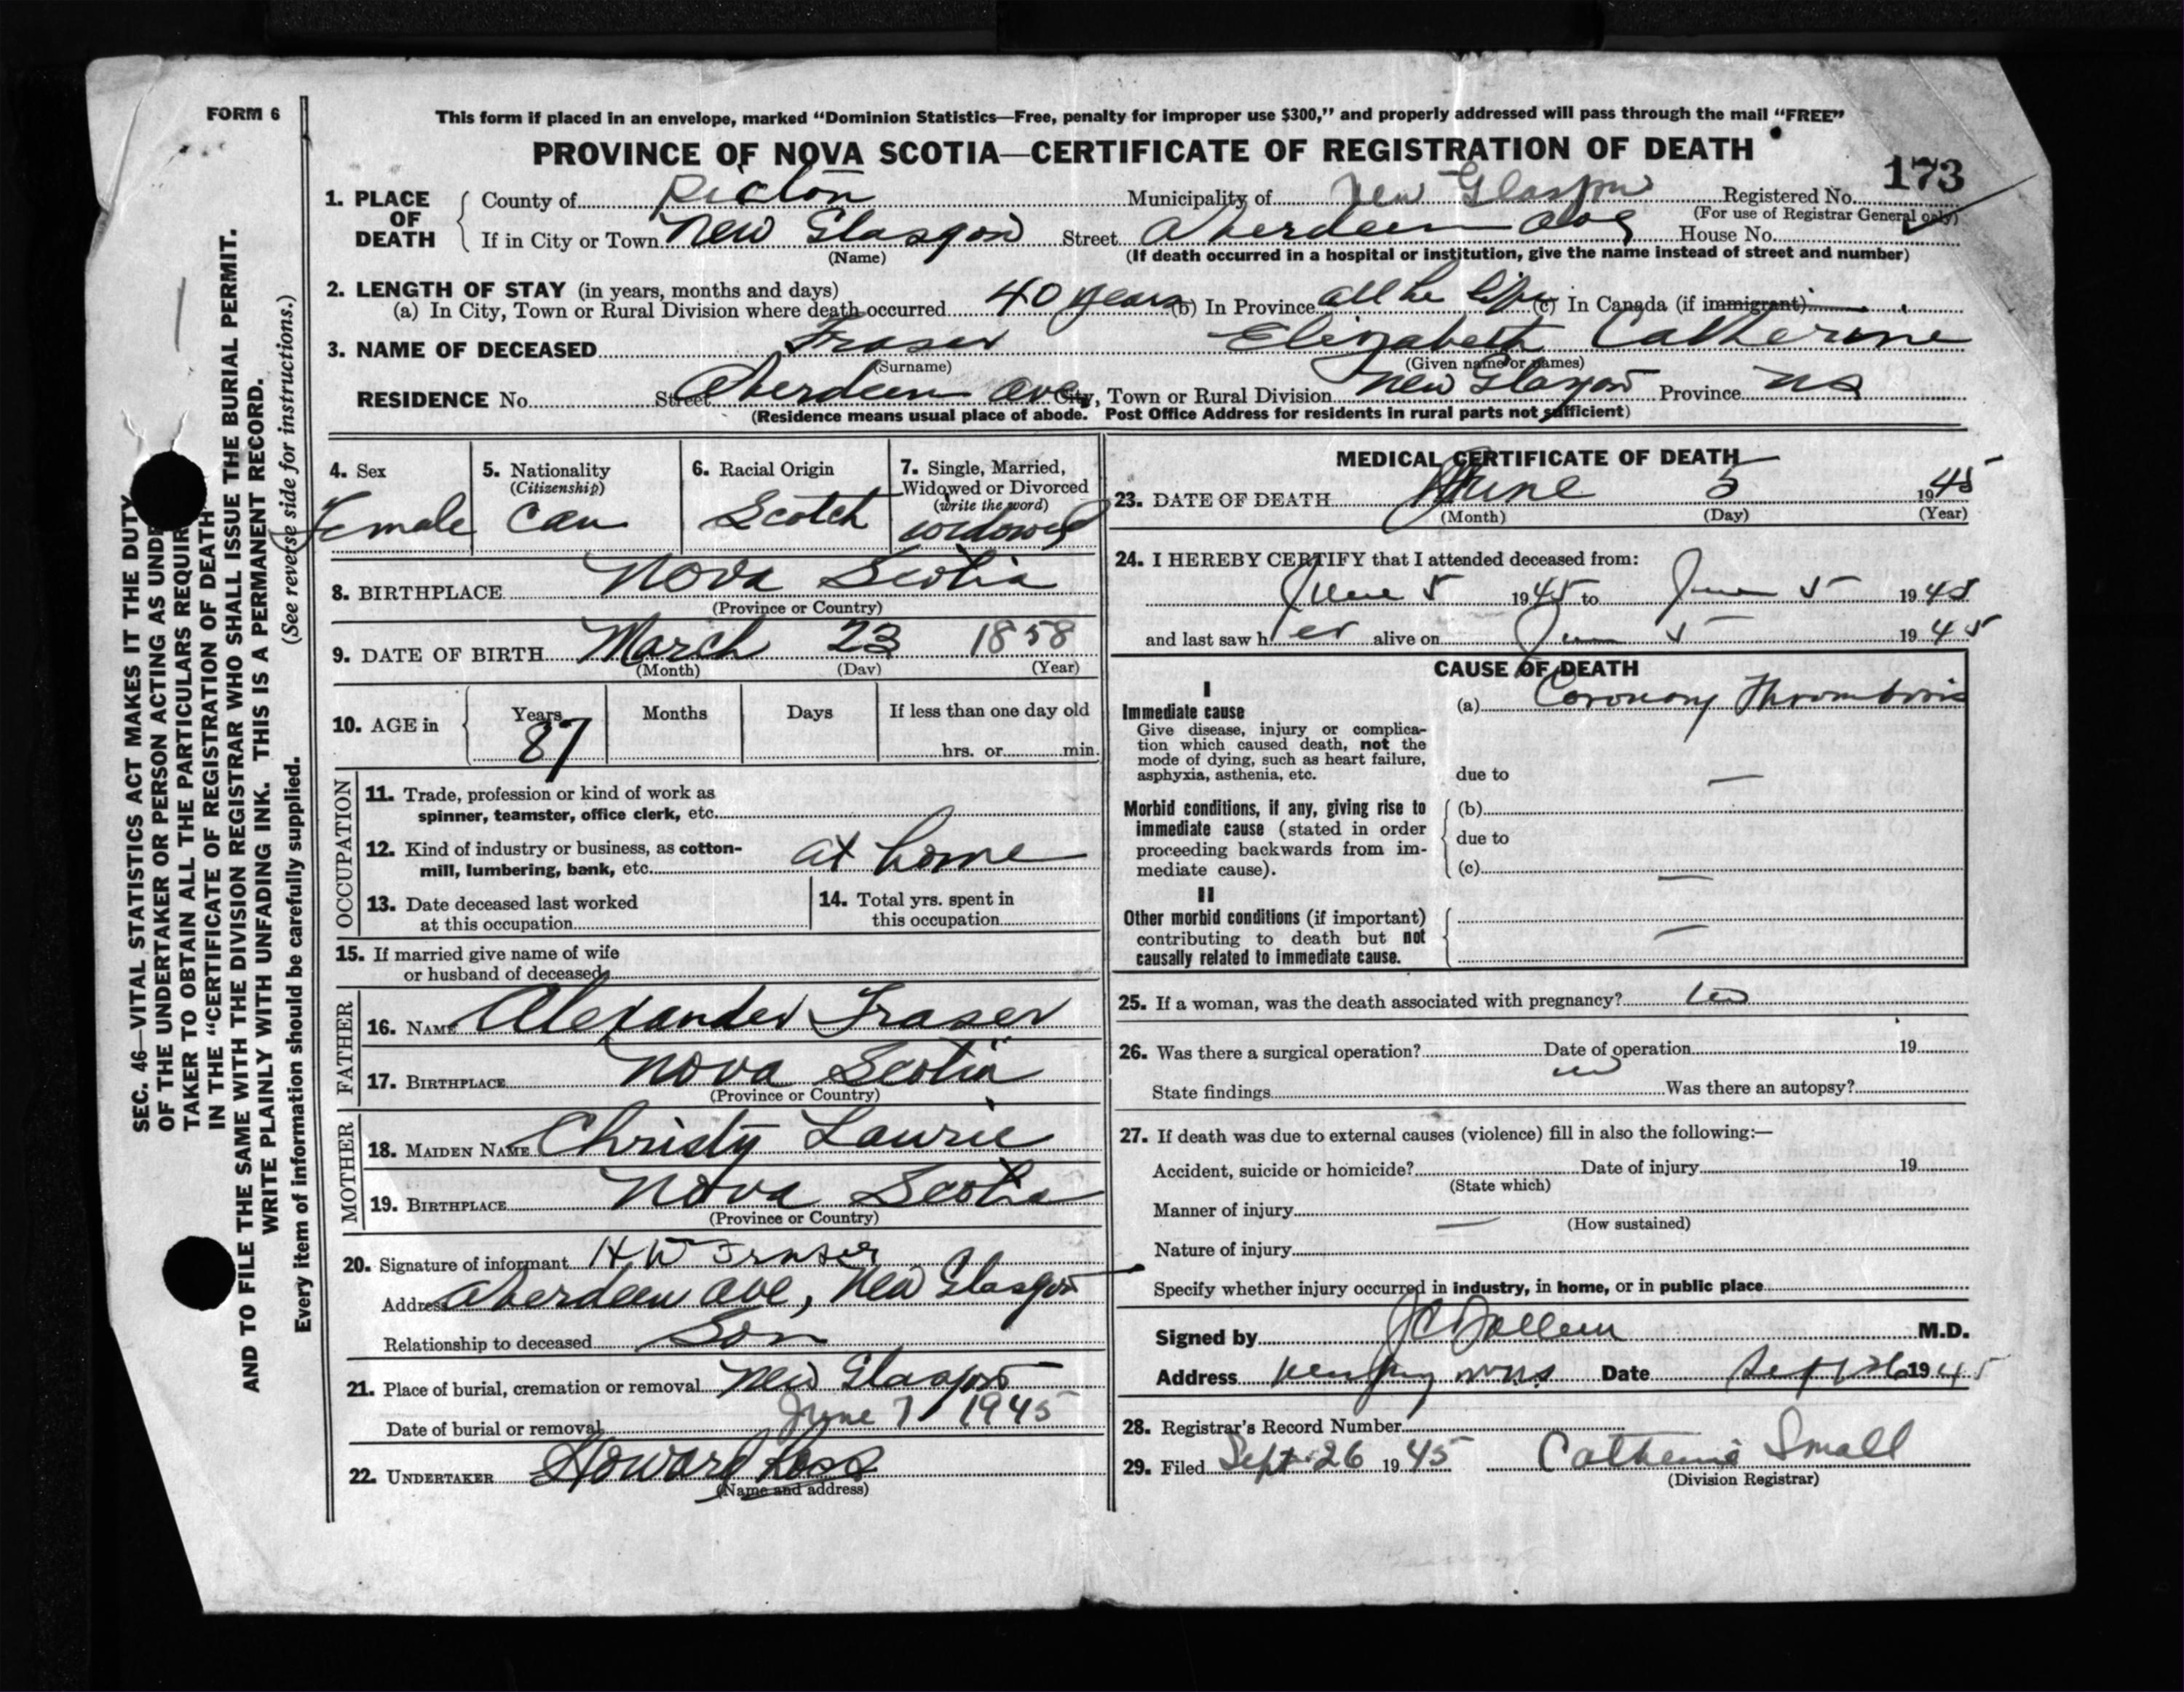 FORM 6
This form if placed in an envelope, marked "Dominion Statistics—Free, penalty for improper use $300," and properly addressed will pass through the mail "FREE"
PROVINCE OF NOVA SCOTIA—CERTIFICATE OF REGISTRATION OF DEATH
173
1. PLACE OF DEATH
County of Pictou Municipality of New Glasgow Registered No.
(For use of Registrar General only)
If in City or Town New Glasgow Street Aberdeen Ave House No.
(Name)
(If death occurred in a hospital or institution, give the name instead of street and number)
2. LENGTH OF STAY (in years, months and days)
(a) In City, Town or Rural Division where death occurred 40 years (b) In Province all he life (c) In Canada (if immigrant)
3. NAME OF DECEASED Fraser Elizabeth Catherine
(Surname) (Given name or names)
RESIDENCE No. Street Aberdeen Ave City, Town or Rural Division New Glasgow Province NS
(Residence means usual place of abode. Post Office Address for residents in rural parts not sufficient)
4. Sex
Female
5. Nationality
(Citizenship)
Can
6. Racial Origin
Scotch
7. Single, Married,
Widowed or Divorced
(write the word)
widowed
8. BIRTHPLACE Nova Scotia
(Province or Country)
9. DATE OF BIRTH March 23 1858
(Month) (Day) (Year)
10. AGE in Years Months Days If less than one day old
87 hrs. or min.
OCCUPATION
11. Trade, profession or kind of work as
spinner, teamster, office clerk, etc.
12. Kind of industry or business, as cotton-
mill, lumbering, bank, etc. at home
13. Date deceased last worked
at this occupation
14. Total yrs. spent in
this occupation
15. If married give name of wife
or husband of deceased
FATHER
16. NAME Alexander Fraser
17. BIRTHPLACE Nova Scotia
(Province or Country)
MOTHER
18. MAIDEN NAME Christy Lawrie
19. BIRTHPLACE Nova Scotia
(Province or Country)
20. Signature of informant H W Fraser
Address Aberdeen Ave, New Glasgow
Relationship to deceased Son
21. Place of burial, cremation or removal New Glasgow
Date of burial or removal June 7 1945
22. UNDERTAKER Howard Ross
(Name and address)
MEDICAL CERTIFICATE OF DEATH
23. DATE OF DEATH June 5 1945
(Month) (Day) (Year)
24. I HEREBY CERTIFY that I attended deceased from:
June 5 1945 to June 5 1945
and last saw her alive on June 5 1945
CAUSE OF DEATH
I
Immediate cause
Give disease, injury or complica-
tion which caused death, not the
mode of dying, such as heart failure,
asphyxia, asthenia, etc.
(a) Coronary Thrombosis
due to —
Morbid conditions, if any, giving rise to
immediate cause (stated in order
proceeding backwards from im-
mediate cause).
(b)
due to
(c) —
II
Other morbid conditions (if important)
contributing to death but not
causally related to immediate cause.
—
25. If a woman, was the death associated with pregnancy?
26. Was there a surgical operation? Date of operation 19
State findings Was there an autopsy?
27. If death was due to external causes (violence) fill in also the following:—
Accident, suicide or homicide? Date of injury 19
(State which)
Manner of injury
— (How sustained)
Nature of injury
Specify whether injury occurred in industry, in home, or in public place
Signed by M.D.
Address Date Sept 26 1945
28. Registrar's Record Number
29. Filed Sept 26 1945 Catherine Small
(Division Registrar)
SEC. 46—VITAL STATISTICS ACT MAKES IT THE DUTY
OF THE UNDERTAKER OR PERSON ACTING AS UNDE
TAKER TO OBTAIN ALL THE PARTICULARS REQUIR
IN THE "CERTIFICATE OF REGISTRATION OF DEATH"
AND TO FILE THE SAME WITH THE DIVISION REGISTRAR WHO SHALL ISSUE THE BURIAL PERMIT.
WRITE PLAINLY WITH UNFADING INK. THIS IS A PERMANENT RECORD.
Every item of information should be carefully supplied. (See reverse side for instructions.)